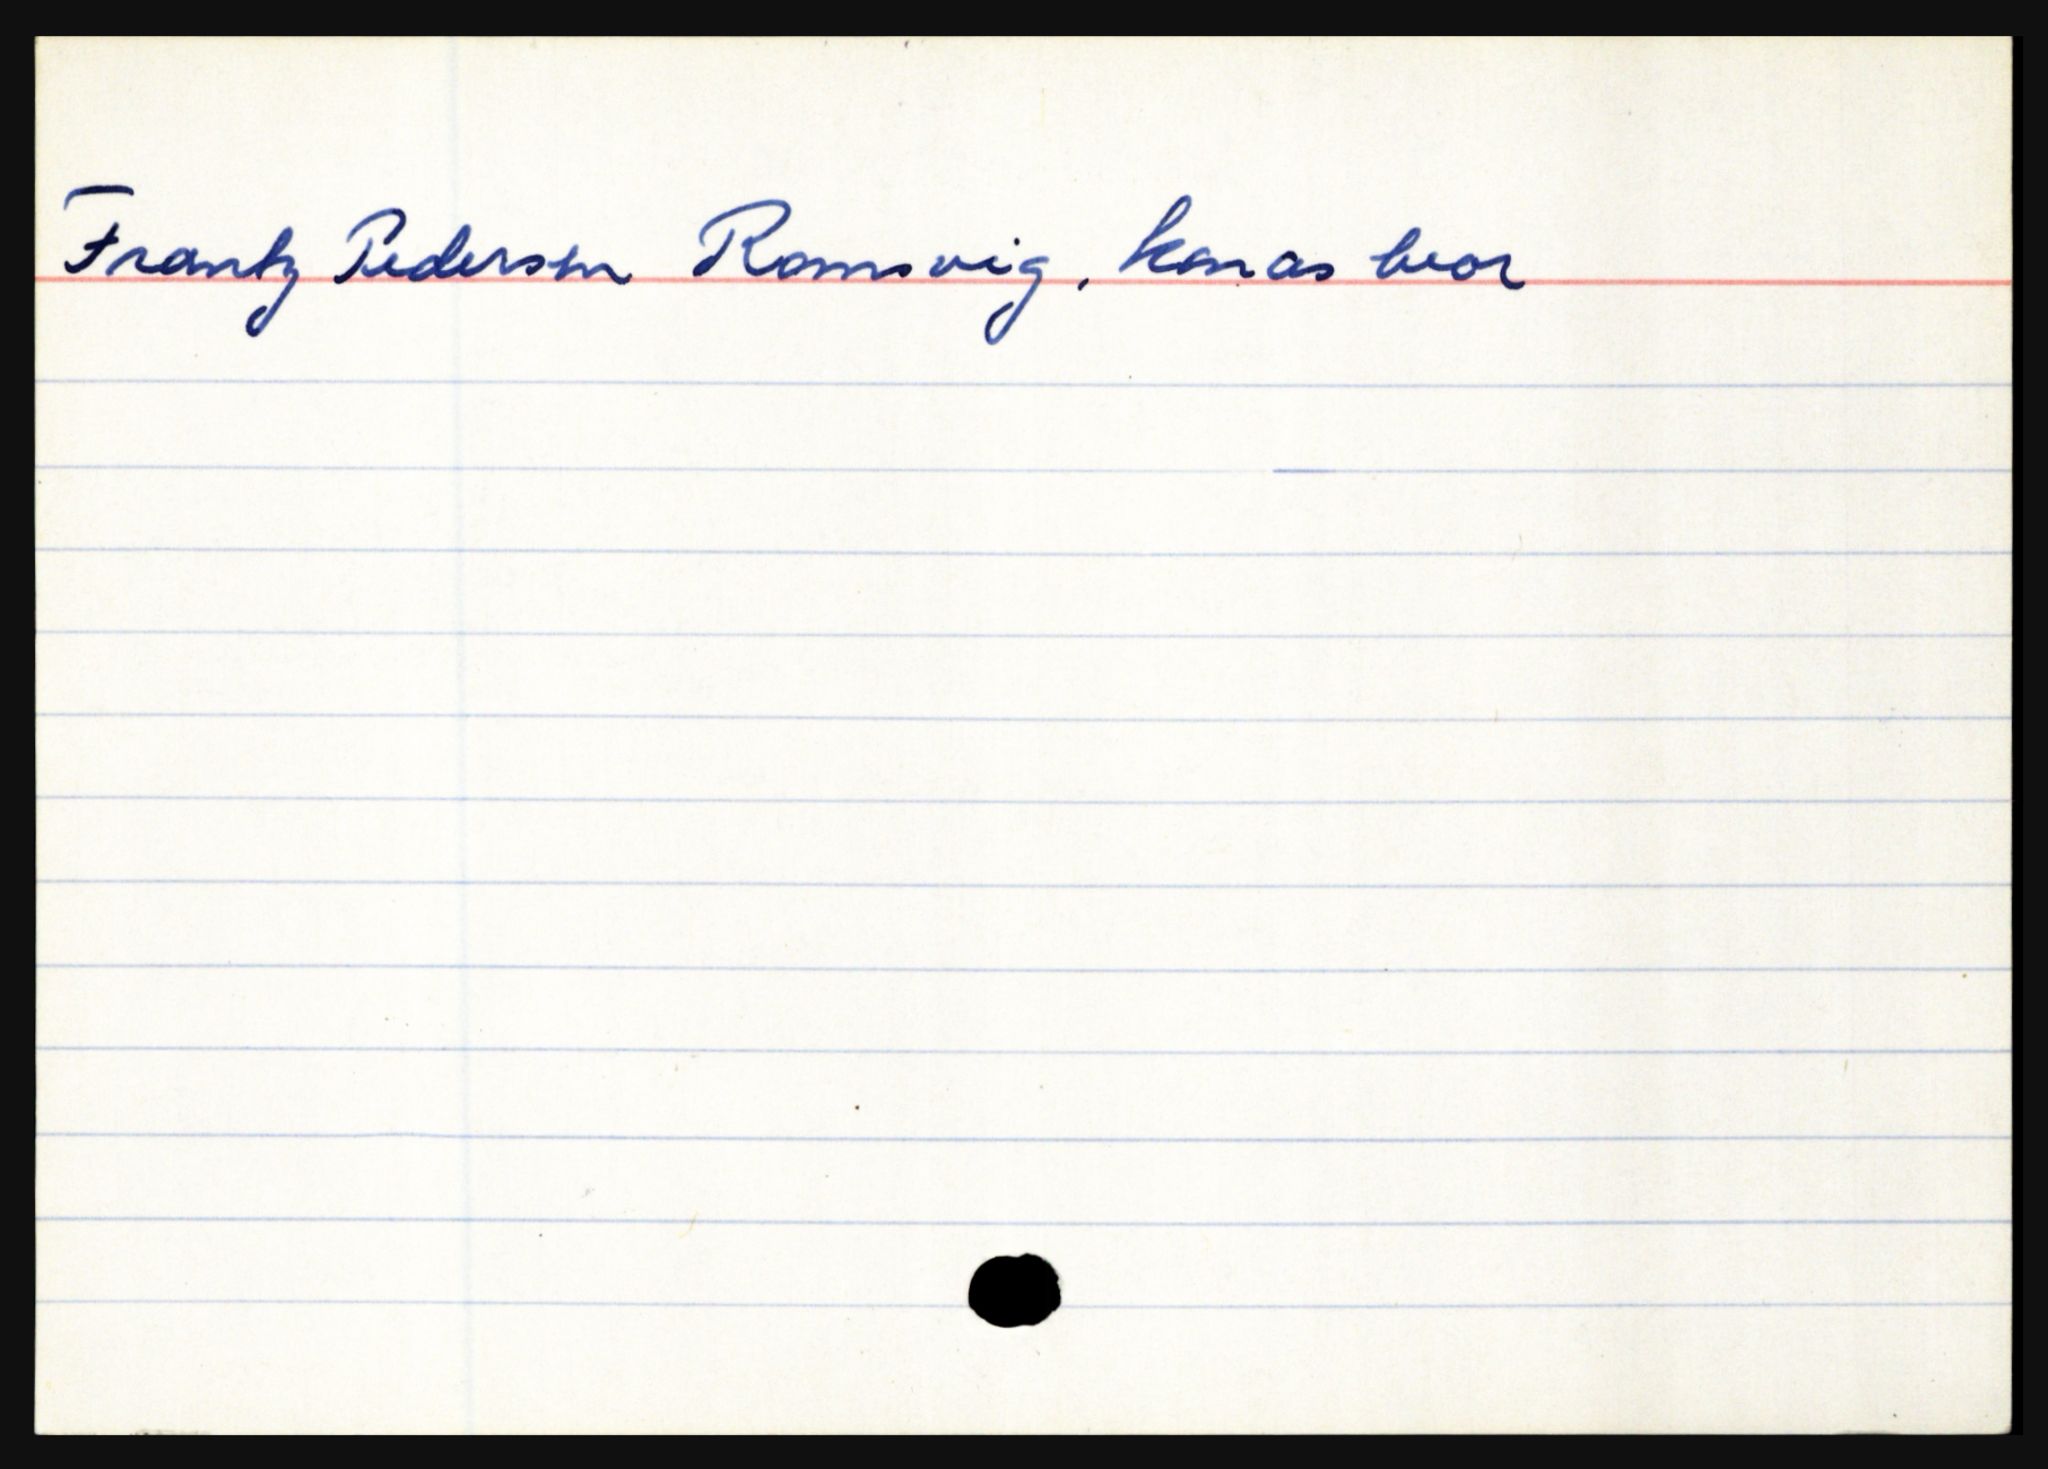 Frantz Pedersen Romsvig, konas bror